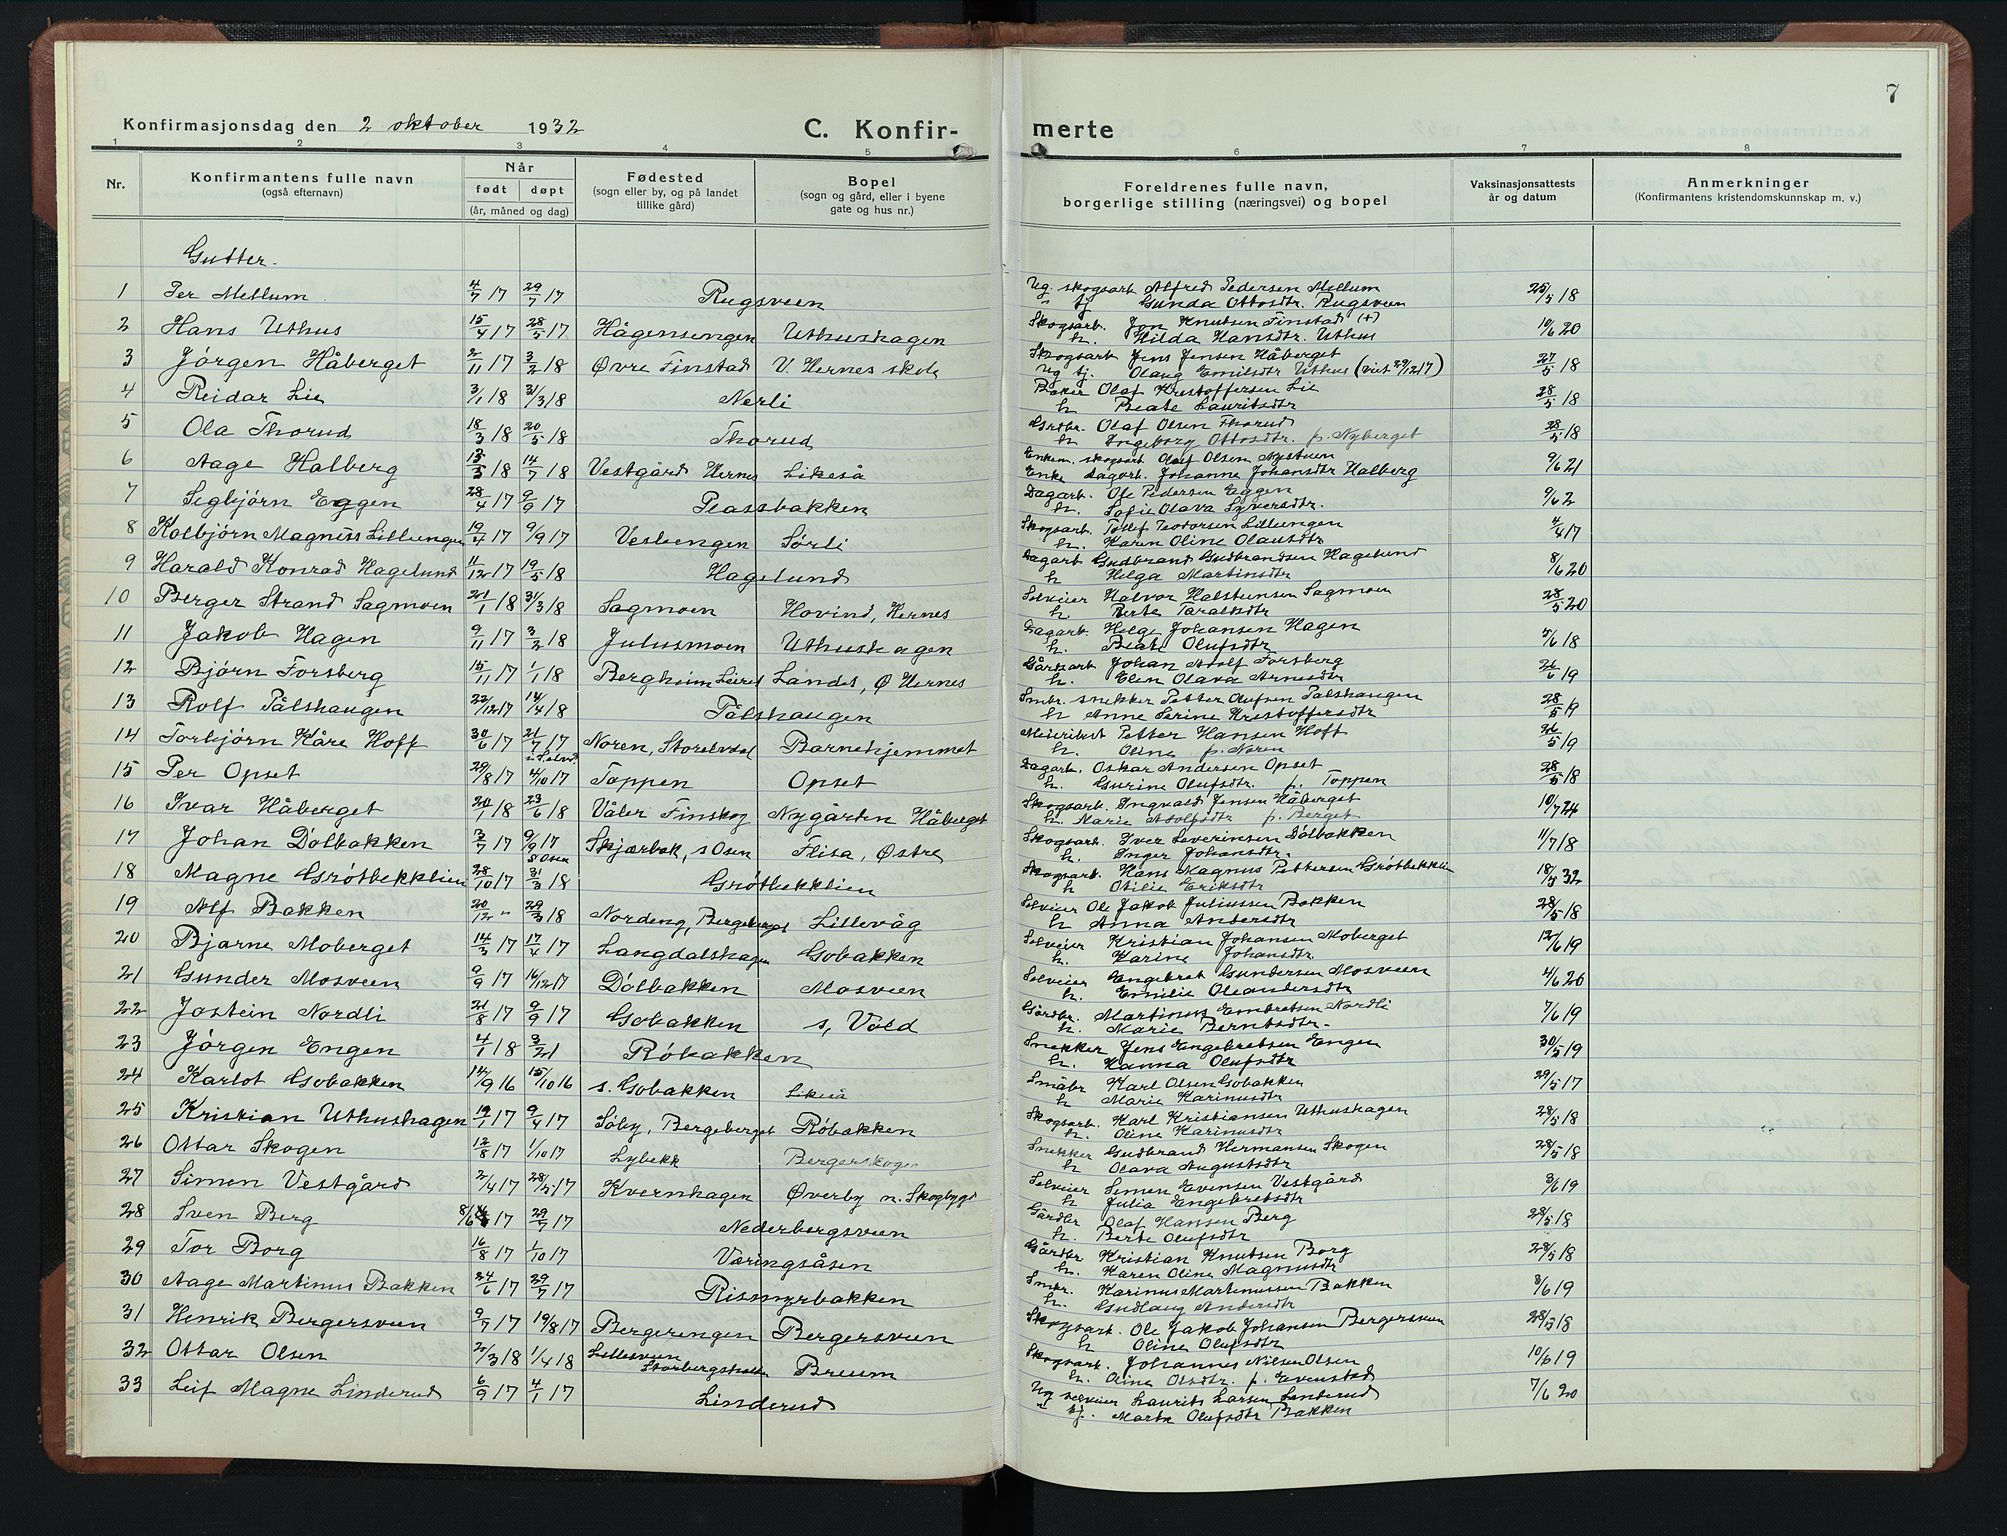 7
Konfirmasjonsdag den 2 oktober 1932
C. Konfir-
merte
1 2 3 4 5 6 7 8
Nr.
Konfirmantens fulle navn
(også efternavn)
Når
født døpt
(år, måned og dag)
Fødested
(sogn eller by, og på landet
tillike gård)
Bopel
(sogn og gård, eller i byene
gate og hus nr.)
Foreldrenes fulle navn,
borgerlige stilling (næringsvei) og bopel
Vaksinasjonsattests
år og datum
Anmerkninger
(Konfirmantens kristendomskunnskap m. v.)
Gutter.
1 Per Mellum 4/7 17 29/7 17 Rugsveen Ug. skogsarb Alfred Pedersen Mellum 25/5 18
" pj Gunda Ottosdtr. Rugsveen
2 Hans Uthus 15/4 17 28/5 17 Hågensengen Uthushagen Skogsarb. Jon Knutsen Finstad (+) 10/6 20
h. Hilda Hansdtr. Uthus
3 Jørgen Håberget 2/11 17 3/2 18 Øvre Finstad V. Hernes skole Skogsarb Jens Jensen Håberget 27/5 18
Ug pj. Olaug Emilsdtr Uthus (viet 29/12 17)
4 Reidar Lie 3/1 18 31/3 18 Nerli Baker Olaf Kristoffersen Lie 28/5 18
h Beate Lauritsdtr
5 Ola Thorud 18/3 18 20/5 18 Thorud Grdbr. Olaf Olsen Thorud 28/5 18
h Ingeborg Ottosdtr. f. Nyberget
6 Aage Halberg 18 14/7 18 Vestgård Hernes Likeså Enkem. skogsarb Olaf Olsen Nystuen 9/6 21
Enke dagarb. Johanne Johansdtr Halberg
7 Segbjørn Eggen 28/4 17 9/9 17 Plassbakken Dagarb. Ole Pedersen Eggen 9/6 2
h. Sofie Olava Syversdtr.
8 Kolbjørn Magnus Lillengen 17 9/9 17 Vestengen Sørli Skogsarb. Tollef Teodorsen Lillengen 4/4 17
h. Karen Oline Olausdtr
9 Harald Konrad Hagelund 11/12 17 19/5 18 Hagelund Dagarb Gudbrand Gudbrandsen Hagelund 8/6 20
h Helga Martinsdtr
10 Berger Strand Sagmoen 21/1 18 31/3 18 Sagmoen Hovind, Hernes Selveier Halvor Halstensen Sagmoen 28/5 20
h Berte Taraldsdtr
11 Jakob Hagen 9/11 17 3/2 18 Julusmoen Uthushagen Dagarb. Helge Johansen Hagen 5/6 18
h. Beate Olufsdtr
12 Bjørn Forsberg 15/11 17 1/1 18 Bergheim Leiret Landet, Ø Hernes Gårdsarb Johan Adolf Forsberg 26/6 19
h. Elen Olava Arnesdtr
13 Rolf Pålshaugen 22/12 17 14/4 18 Pålshaugen Smbr. snekker Petter Olufsen Pålshaugen 28/5 19
h Anne Serine Kristoffersdtr
14 Torbjørn Kåre Hoff 30/6 17 21/7 17 Noren, Storelvdal Barnehjemmet Meieribest Petter Hansen Hoff 26/5 19
h. Oline f. Noren
15 Per Opset 29/8 17 4/10 17 Toppen Opset Dagarb. Oskar Andersen Opset 28/5 18
h. Gurine Olufsdtr. f. Toppen
16 Ivar Håberget 20/1 18 23/6 18 Våler Finskog Nygården Håberget Skogsarb. Ingvald Jensen Håberget 10/7 24
h. Marie Adolfsdtr f. Berget
17 Johan Dølbakken 3/7 17 9/9 17 S Osen Skjærbek, s Osen Flisa, Østre Skogsarb. Iver Severinsen Dølbakken 11/7 18
h. Inger Johansdtr.
18 Magne Grøtbekklien 28/10 17 31/3 18 Grøtbekklien Skogsarb. Hans Magnus Pettersen Grøtbekklien 18/5 32
h Otilie Eriksdtr
19 Alf Bakken 20/12 " 29/3 18 Nordeng, Bergeberget Lillevåg Selveier Ole Jakob Juliussen Bakken 28/5 18
h Anna Andersdtr
20 Bjarne Moberget 14/3 17 17/4 17 Langdalshagen Gobakken Selveier Kristian Johansen Moberget 12/6 19
h. Karine Johansdtr.
21 Gunder Mosveen 9/9 17 16/12 17 Dølbakken Mosveen Selveier Engebret Gundersen Mosveen 4/6 20
h. Emilie Oleandersdtr
22 Jostein Nordli 21/8 17 9/9 17 Gobakken s, Vold Gårdbr. Martinus Embretsen Nordli 7/6 19
h. Marie Berntsdtr.
23 Jørgen Engen 4/1 18 3/2 Røbakken Snekker Jens Engebretsen Engen 30/5 19
h. Hanna Olufsdtr
24 Karlot Gobakken 14/9 16 15/10 16 s. Gobakken Likeså Småbr Karl Olsen Gobakken 29/5 17
h Marie Karinusdtr
25 Kristian Uthushagen 17 9/4 17 Søby, Bergeberget Røbakken Skogsarb. Karl Kristiansen Uthushagen 28/5 18
h. Oline Karinusdtr
26 Ottar Skogen 12/8 17 1/10 17 Lybekk Bergerskogen Snekker Gudbrand Hermansen Skogen 28/5 18
h Olava Augustsdtr
27 Simen Vestgård 2/4 17 28/5 17 Kvernhagen Øverby n. Skogbygd Selveier Simen Evensen Vestgård 3/6 19
h Julia Engebretsdtr
28 Sven Berg 8/6 17 29/7 17 Nederbergsveen Gårdbr Olaf Hansen Berg 28/5 18
h. Berte Olufsdtr
29 Tor Borg 16/8 17 1/10 17 Væringsåsen Gårdbr Kristian Knutsen Borg 28/5 18
h. Karen Oline Magnusdtr
30 Aage Martinus Bakken 24/6 17 29/7 17 Rismyrbakken Smbr. Karinus Martinussen Bakken 3/6 19
h. Gudlaug Andersdtr
31 Henrik Bergersveen 9/7 17 19/8 17 Bergerengen Bergersveen Skogsarb. Ole Jakob Johansen Bergersveen 28/5 18
h Oline Olufsdtr
32 Ottar Olsen 2/3 18 1/4 18 Lillesveen Breum Skogsarb. Johannes Nilsen Olsen 10/6 19
h. Oline Olsdtr. f. Evenstad
33 Leif Magne Linderud 6/9 17 4/1 17 Linderud Ug selveier Laurits Larsen Linderud 7/6 20
" pj. Marta Olufsdtr Bakken